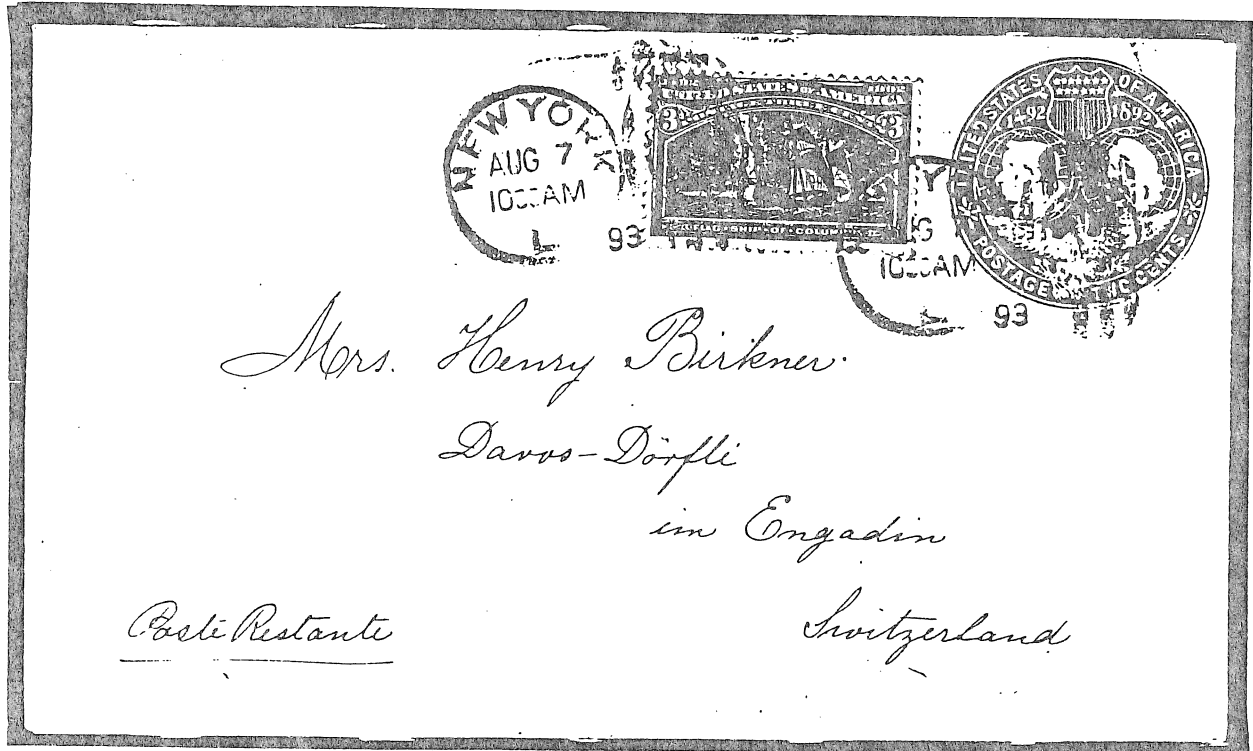 NEW YORK
AUG 7
10 AM
L
93
UNITED STATES OF AMERICA
3 3
FLAG SHIP OF COLUMBUS
UNITED STATES OF AMERICA
1492 1892
POSTAGE TWO CENTS
Y
G
10 AM
93
Mrs. Henry Birkner.
Davos-Dörfli
im Engadin
Poste Restante
Switzerland